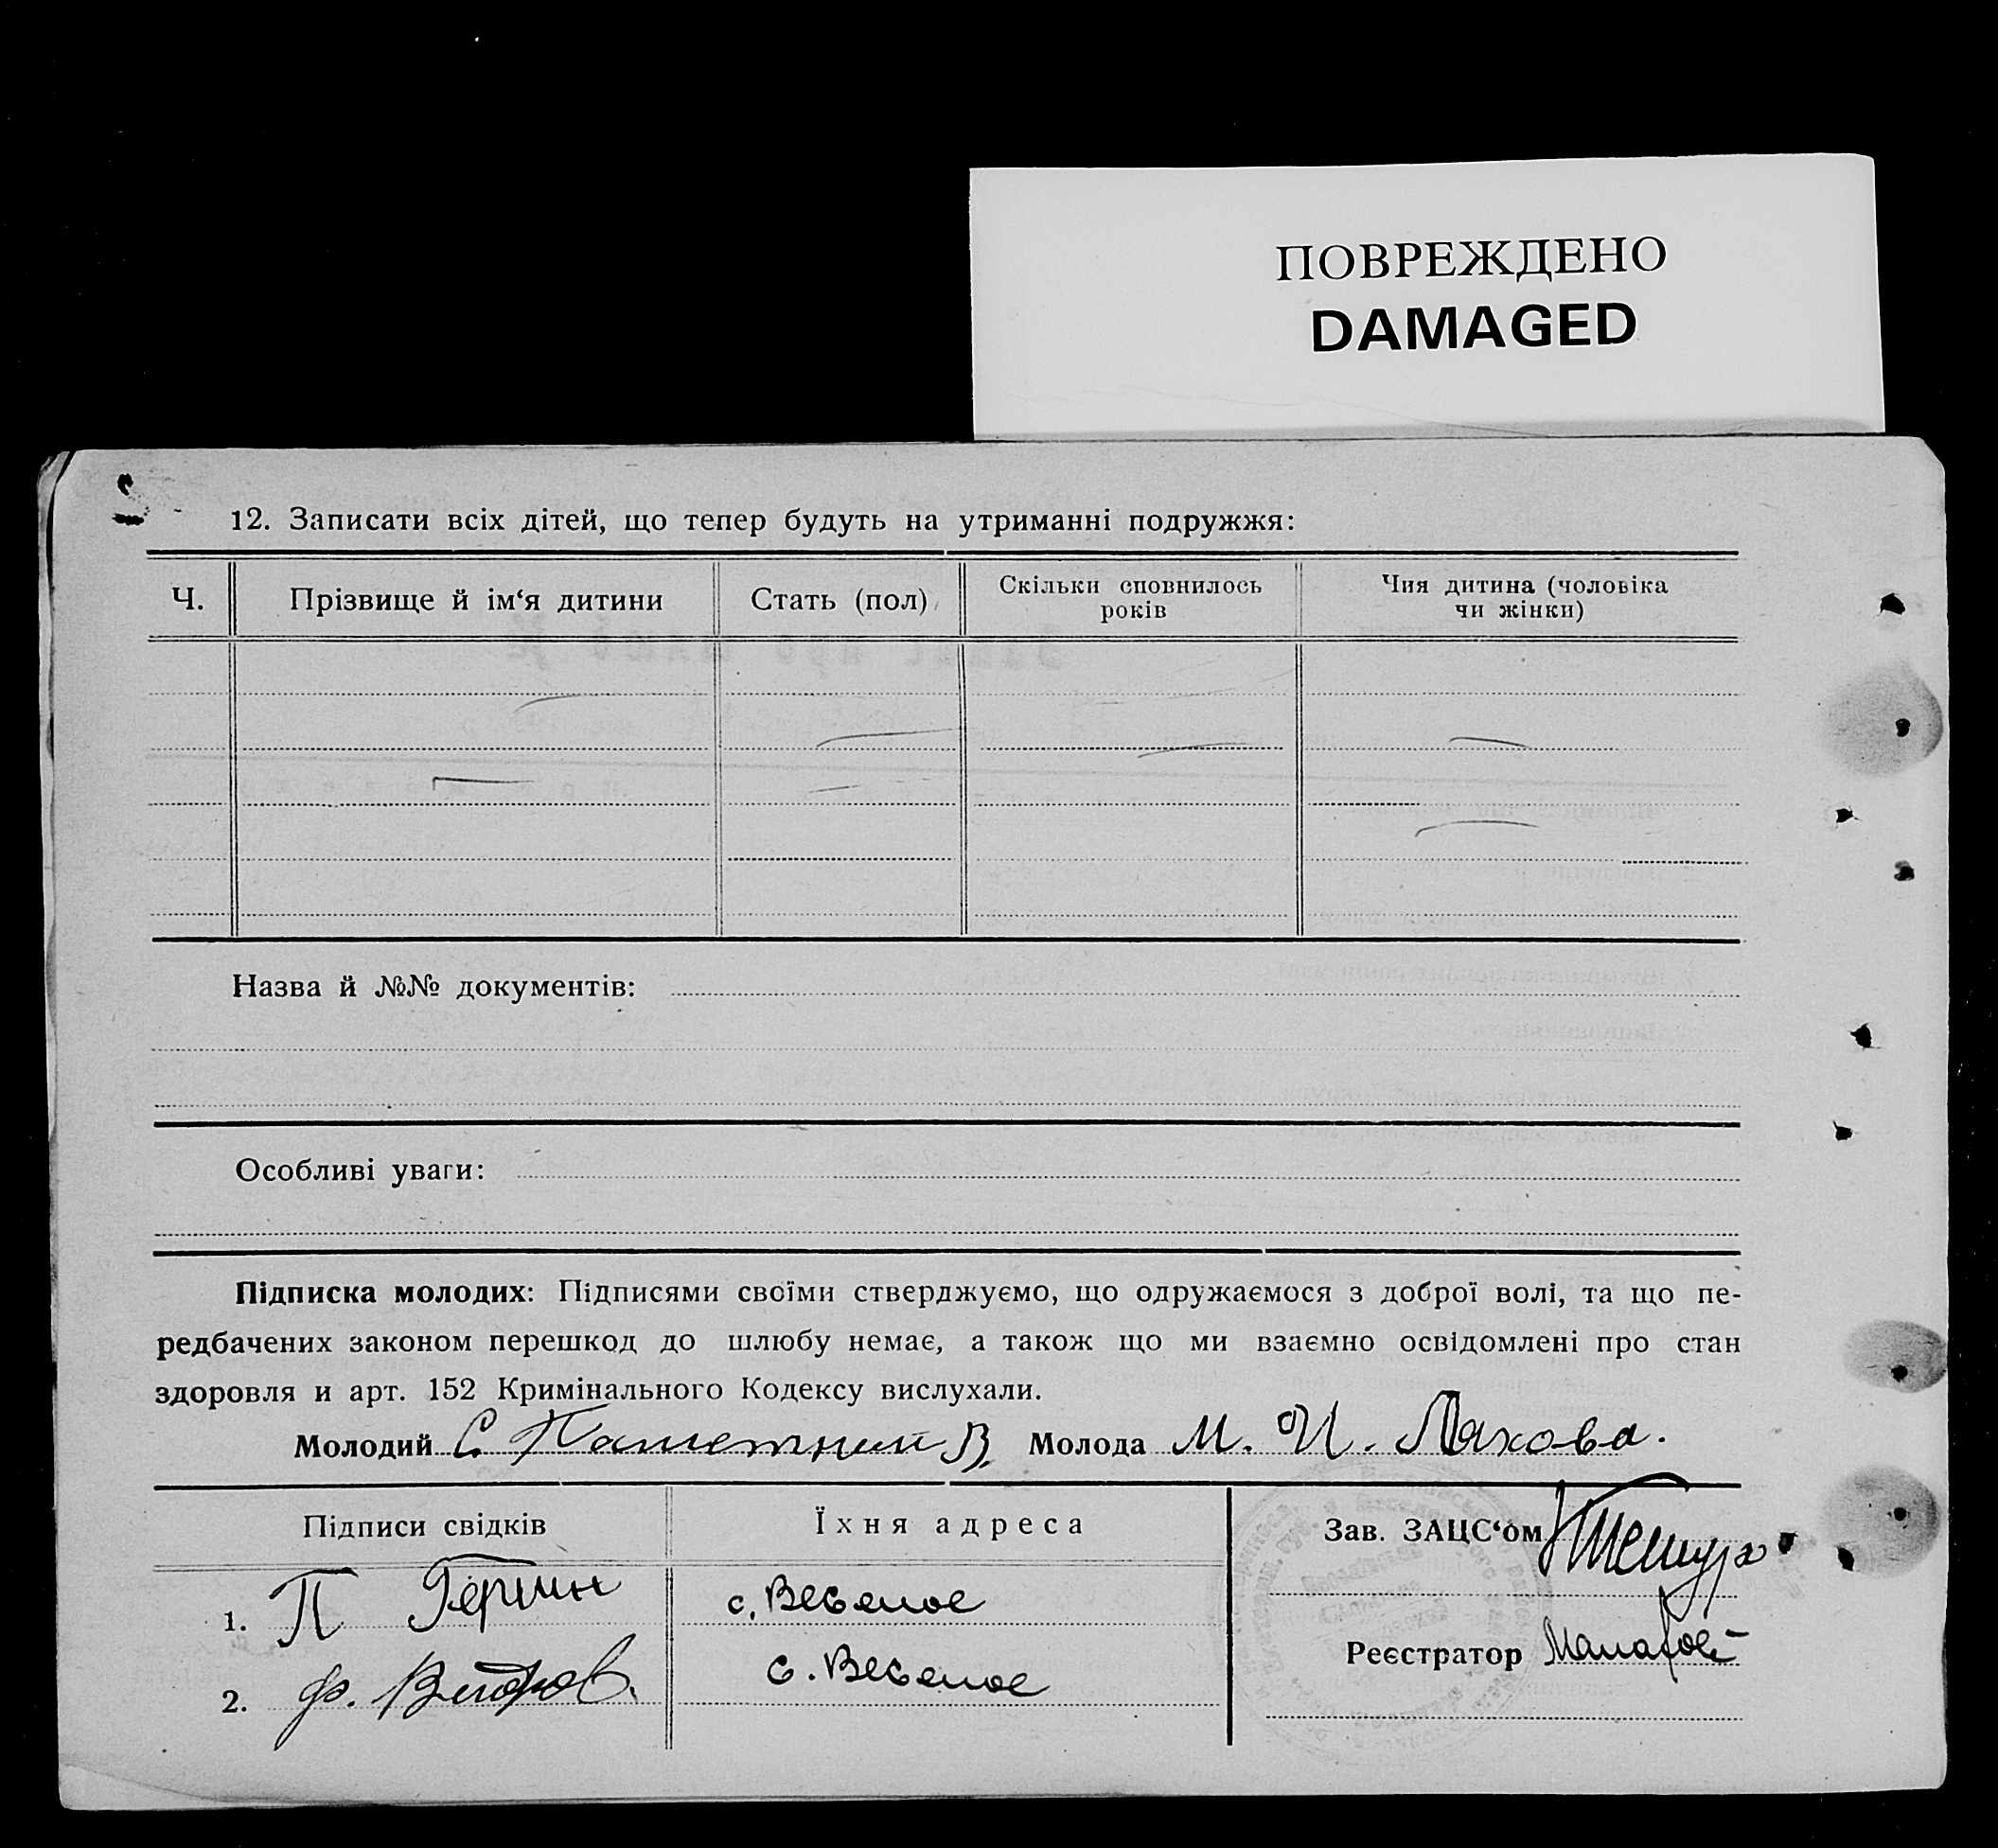 ПОВРЕЖДЕНО
DAMAGED
12. Записати всіх дітей, що тепер будуть на утриманні подружжя:
Ч. Прізвище й ім‘я дитини Стать (пол) Скільки сповнилось років Чия дитина (чоловіка чи жінки)
Назва й №№ документів:
Особливі уваги:
Підписка молодих: Підписями своїми стверджуємо, що одружаємося з доброї волі, та що пе-
редбачених законом перешкод до шлюбу немає, а також що ми взаємно освідомлені про стан
здоровля и арт. 152 Кримінального Кодексу вислухали.
Молодий С. Молода М. И. Ляхова.
Підписи свідків Їхня адреса Зав. ЗАЦС‘ом
1. П с. Веселое
Реєстратор
2. Ф. с. Веселое